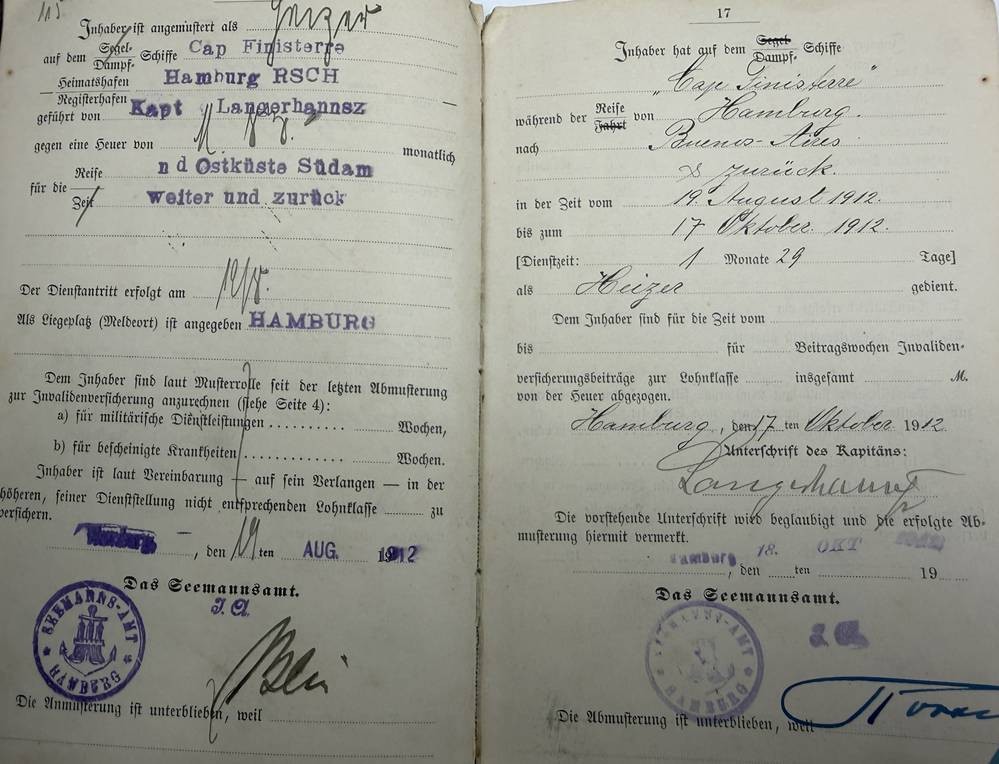 115
Inhaber ist angemustert als Heizer
auf dem Segel- Dampf- Schiffe Cap Finisterre
Heimatshafen Registerhafen Hamburg RSCH
geführt von Kapt Langerhannsz
gegen eine Heuer von monatlich
für die Reise Zeit n d Ostküste Südam
weiter und zurück
Der Dienstantritt erfolgt am 19/8.
Als Liegeplatz (Meldeort) ist angegeben HAMBURG
Dem Inhaber sind laut Musterrolle seit der letzten Abmusterung
zur Invalidenversicherung anzurechnen (siehe Seite 4):
a) für militärische Dienstleistungen .......... Wochen,
b) für bescheinigte Krankheiten ............ Wochen.
Inhaber ist laut Vereinbarung — auf sein Verlangen — in der
höheren, seiner Dienststellung nicht entsprechenden Lohnklasse zu
versichern.
Hamburg, den 19 ten AUG. 1912
Das Seemannsamt.
J. A.
SEEMANNS-AMT
HAMBURG
Die Anmusterung ist unterblieben, weil
17
Inhaber hat auf dem Segel- Dampf- Schiffe
"Cap Finisterre"
während der Reise Fahrt von Hamburg.
nach Buenos-Aires
& zurück.
in der Zeit vom 19. August 1912.
bis zum 17 Oktober. 1912.
[Dienstzeit: 1 Monate 29 Tage]
als Heizer gedient.
Dem Inhaber sind für die Zeit vom
bis für Beitragswochen Invaliden-
versicherungsbeiträge zur Lohnklasse insgesamt M.
von der Heuer abgezogen.
Hamburg, den 17 ten Oktober 1912
Unterschrift des Kapitäns:
Langerhannsz
Die vorstehende Unterschrift wird beglaubigt und die erfolgte Ab-
musterung hiermit vermerkt.
Hamburg, den 18. ten OKT 19 1912
Das Seemannsamt.
J. A.
SEEMANNS-AMT
HAMBURG
Die Abmusterung ist unterblieben, weil